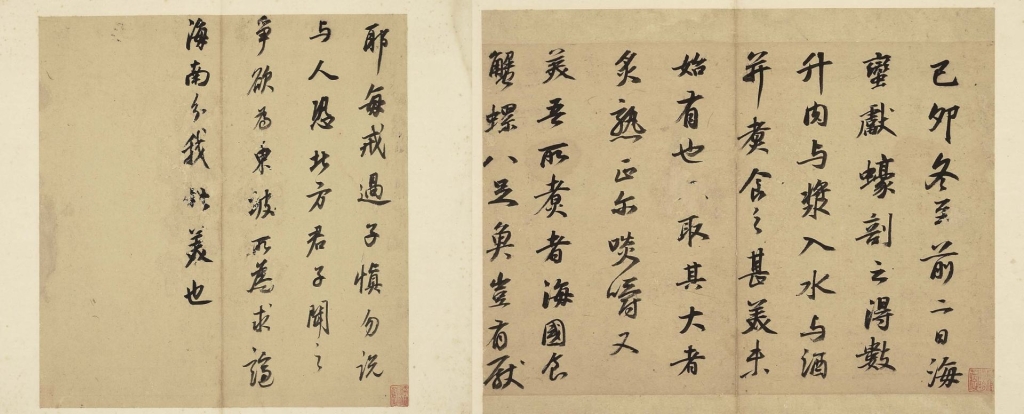 己卯冬至前二日海
蠻獻蠔剖之得數
升肉与漿入水与酒
并煑食之甚美未
始有也取其大者
炙熟正尔啖嚼又
美吾所煑者海國食
蟹螺八足魚豈有厭
耶每戒過子慎勿說
与人恐北方君子聞之
爭欲為東坡所爲求謫
海南分我美也